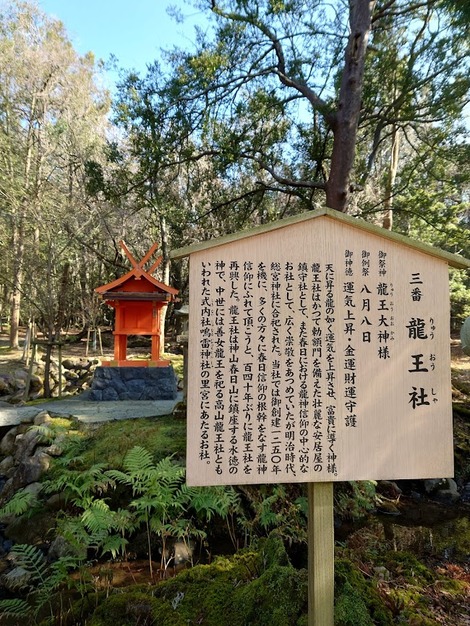 三番 龍王社
りゅう おう しゃ
御祭神 龍王大神様
御例祭 八月八日
御神徳 運気上昇・金運財運守護
天に昇る龍の如く運気を上昇させ、富貴に導く神様。
龍王社はかつて勅額門を備えた壮麗な安居屋の
鎮守社として、また春日における龍神信仰の中心的な
お社として、広く崇敬をあつめていたが明治時代、
総宮神社に合祀された。当社では御創建一二五〇年
を機に、多くの方々に春日信仰の根幹をなす龍神
信仰にふれて頂こうと、百四十年ぶりに龍王社を
再興した。龍王社は神山春日山に鎮座する水徳の
神で、中世には善女龍王を祀る高山龍王社とも
いわれた式内社鳴雷神社の里宮にあたるお社。